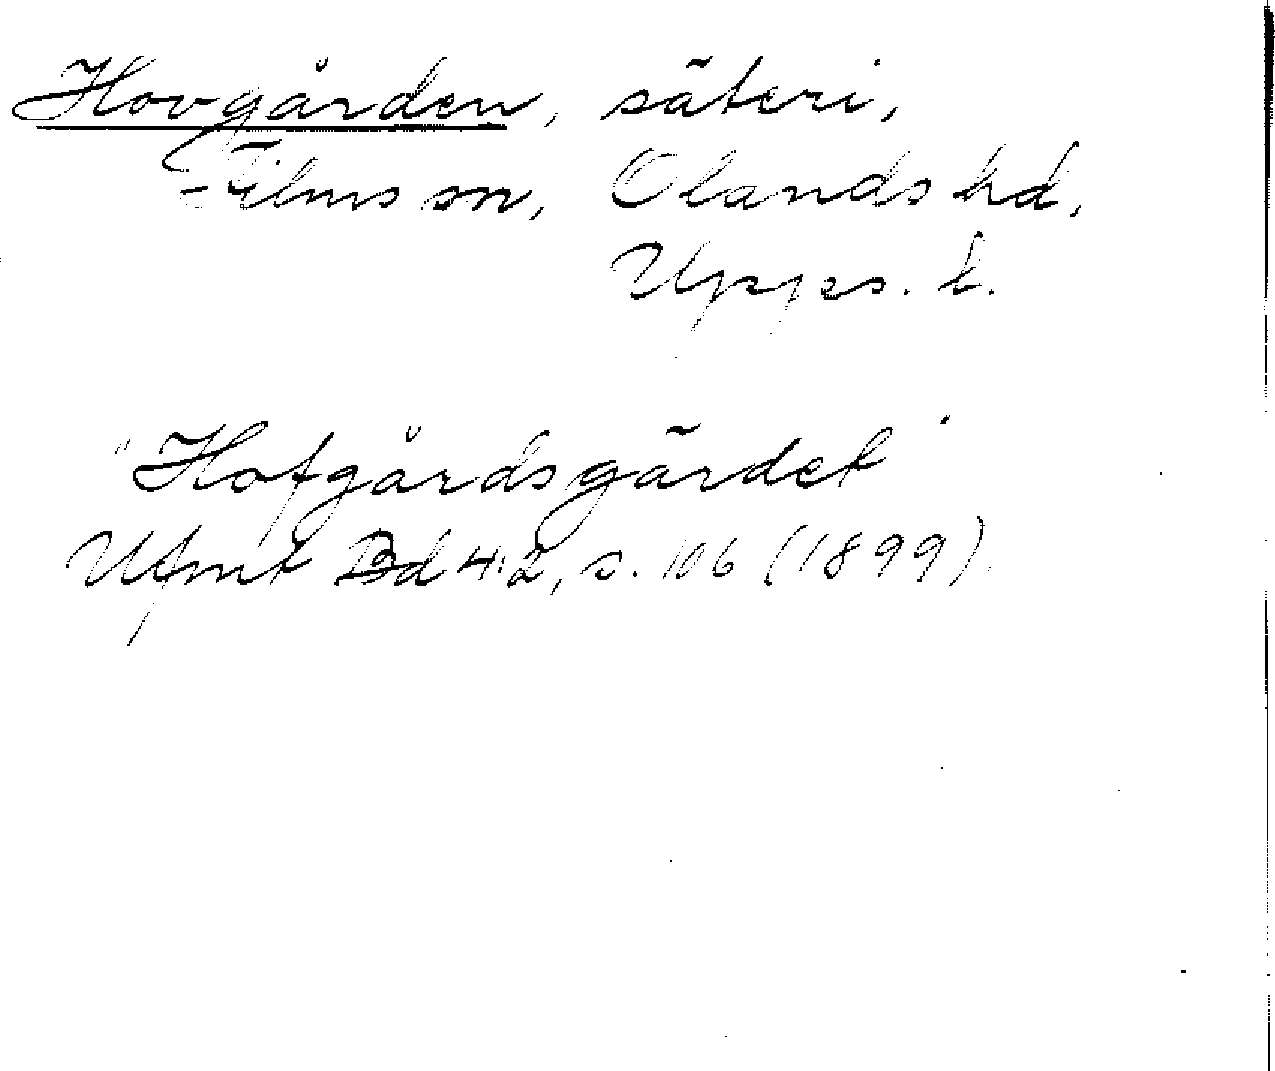 Hovgården, säteri,
Films sn, Olands hd,
Upps. l.
"Hofgårdsgärdet"
Ufmt Bd 4:2, s. 106 (1899).